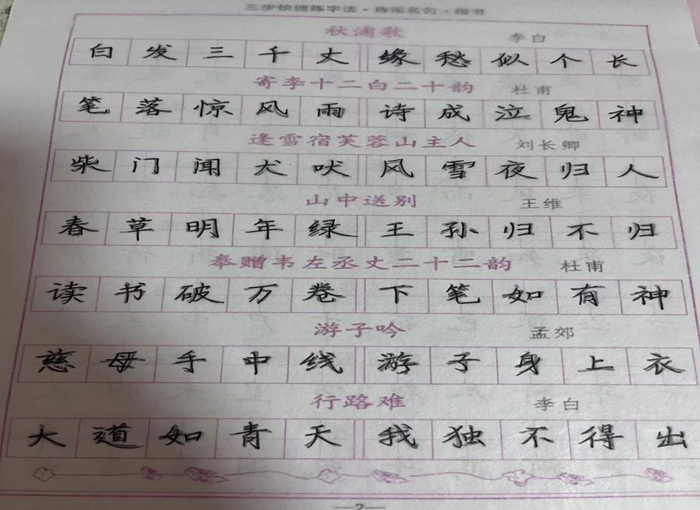 三步快速练字法·诗词名句·楷书
秋浦歌 李白
白发三千丈 缘愁似个长
寄李十二白二十韵 杜甫
笔落惊风雨 诗成泣鬼神
逢雪宿芙蓉山主人 刘长卿
柴门闻犬吠 风雪夜归人
山中送别 王维
春草明年绿 王孙归不归
奉赠韦左丞丈二十二韵 杜甫
读书破万卷 下笔如有神
游子吟 孟郊
慈母手中线 游子身上衣
行路难 李白
大道如青天 我独不得出
—2—